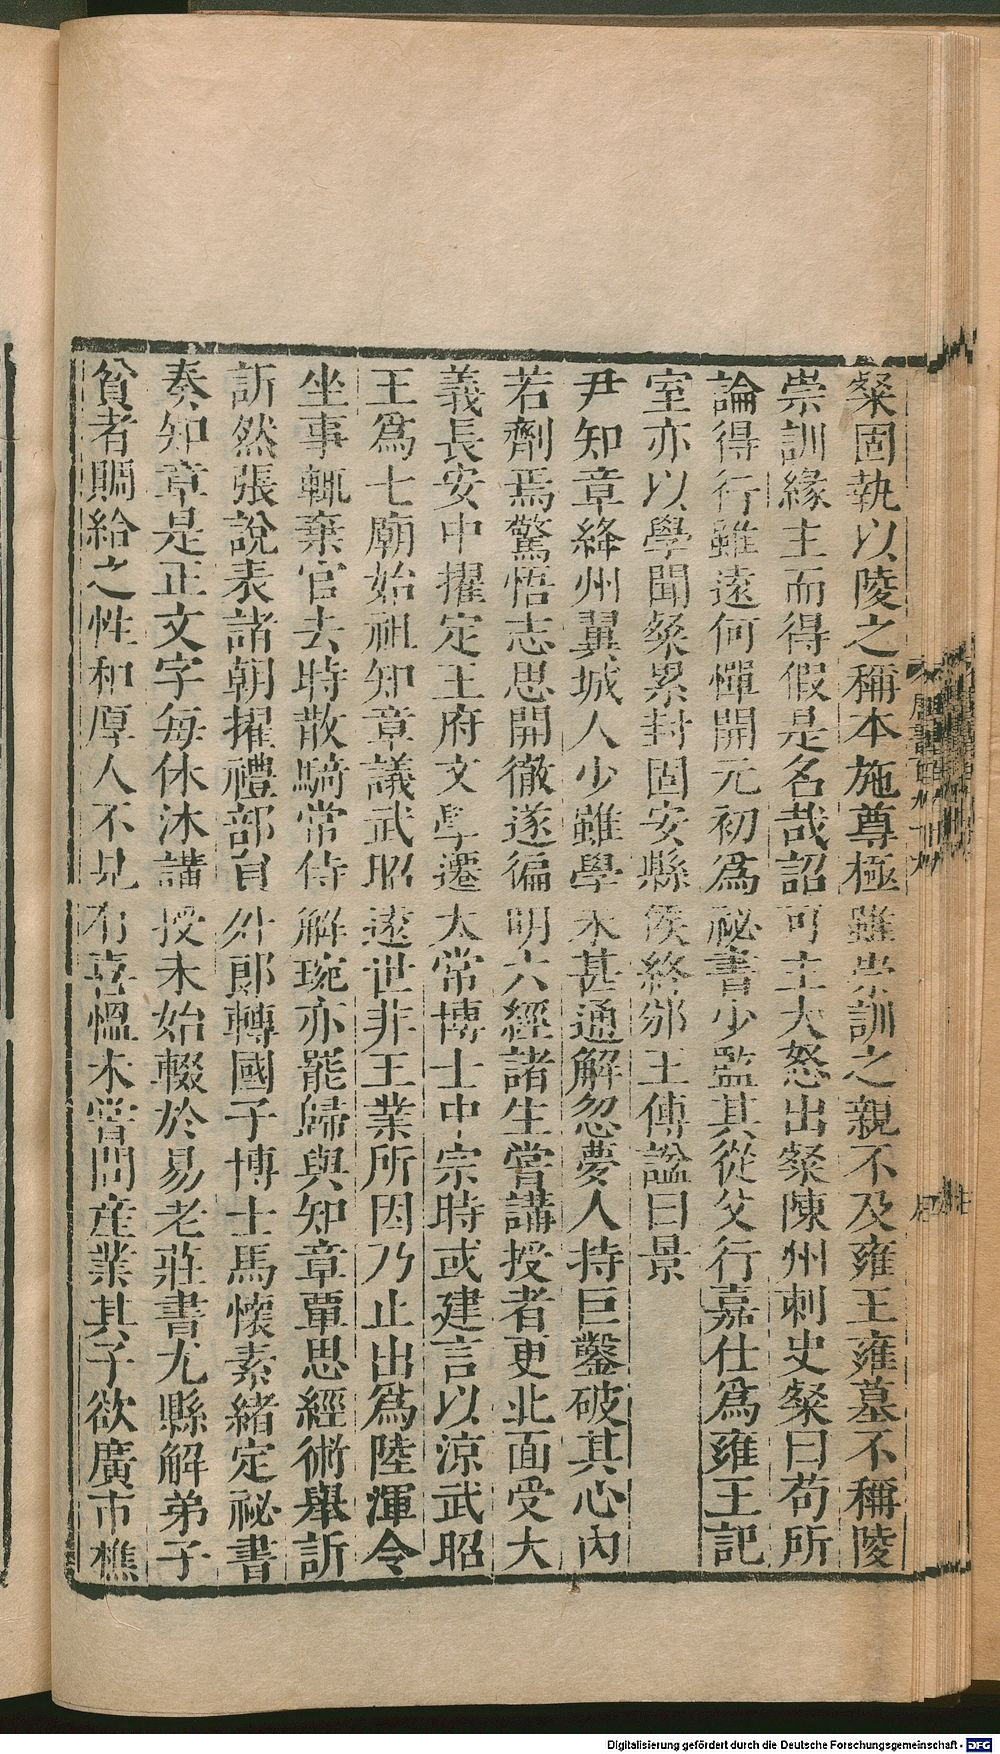 粲固執以陵之稱本施尊極雖崇訓之親不及雍王雍墓不稱陵
崇訓緣主而得假是名哉詔可主大怒出粲陳州刺史粲曰苟所
論得行雖遠何憚開元初爲祕書少監其從父行嘉仕爲雍王記
室亦以學聞粲累封固安縣侯終邠王傅謚曰景
尹知章絳州翼城人少雖學未甚通解忽夢人持巨鑿破其心内
若劑焉驚悟志思開徹遂徧明六經諸生嘗講授者更北面受大
義長安中擢定王府文學遷太常博士中宗時或建言以涼武昭
王爲七廟始祖知章議武昭遠世非王業所因乃止出爲陸渾令
坐事輒棄官去時散騎常侍解琬亦罷歸與知章覃思經術舉訢
訢然張說表諸朝擢禮部員外郎轉國子博士馬懷素緒定祕書
奏知章是正文字每休沐講授未始輟於易老莊書尤縣解弟子
貧者賙給之性和厚人不見有喜慍未嘗問産業其子欲廣市樵
Digitalisierung gefördert durch die Deutsche Forschungsgemeinschaft - DFG